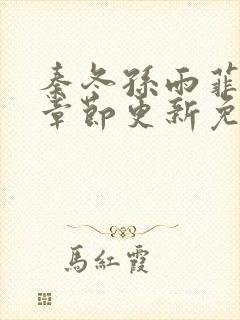 秦冬孫雨菲
章節更新免
馬紅霞